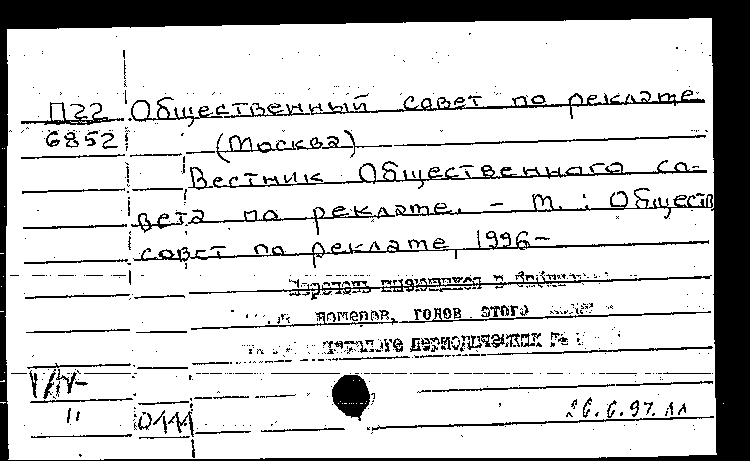 П22 Общественный совет по рекламе
6852 (Москва)
Вестник Общественного со-
вета по рекламе. - М. : Обществ
совет по рекламе, 1996-
Перечень имеющихся в
номеров, годов этого
каталоге периодических
11 0111
26.6.97.